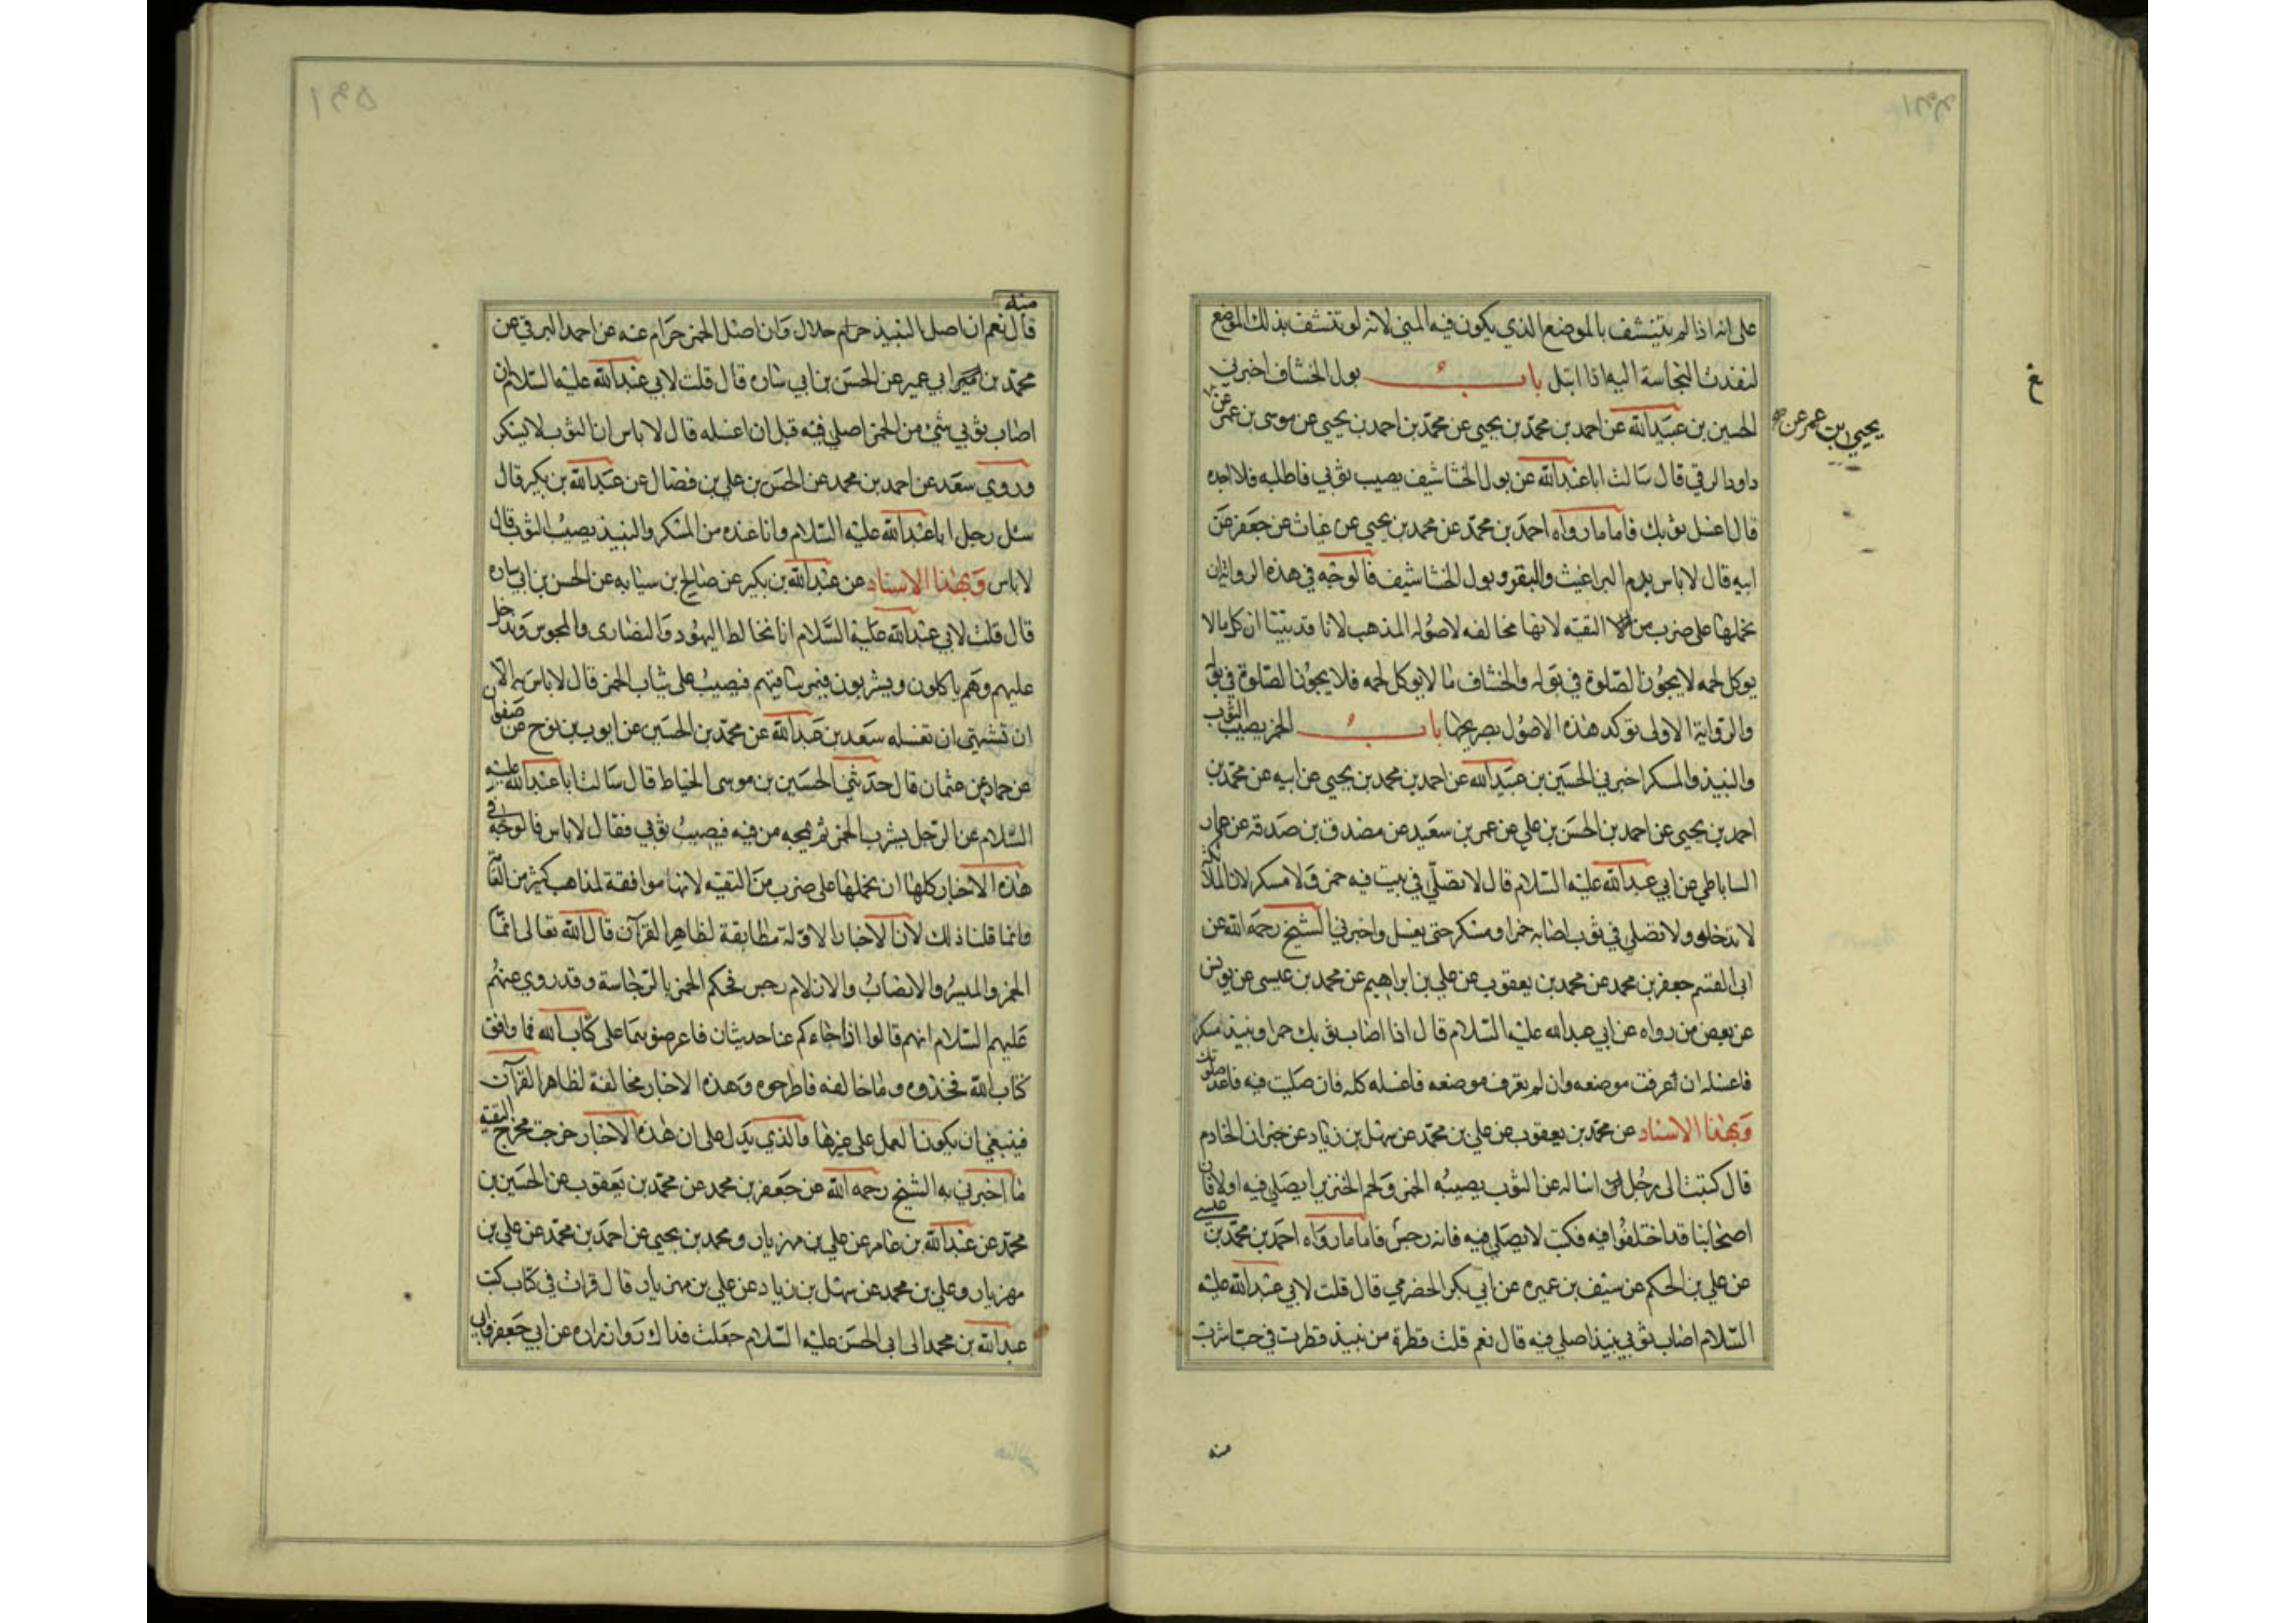 على انه اذا لم يتنشف بالموضع الذي يكون فيه المني لانه لو تنشف بذلك الموضع
لنفذت النجاسة اليه اذا ابتل باب بول الخشاف اخبرني
الحسين بن عبيدالله عن احمد بن محمد بن يحيى عن محمد بن احمد بن يحيى عن موسى بن عمر عن
يحيى بن عمر عن
داود الرقي قال سالت اباعبدالله عن بول الخشاشيف يصيب ثوبي فاطلبه فلا اجده
قال اغسل ثوبك فاما ما رواه احمد بن محمد عن محمد بن يحيي عن غياث عن جعفر عن
ابيه قال لا باس بدم البراغيث والبق و بول الخشاشيف فالوجه في هذه الرواية ان
نحملها على ضرب من التقيه لانها مخالفه لاصول المذهب لانا قد بينا ان كل ما لا
يوكل لحمه لا يجوز الصلوة في بوله والخشاف مما لا يوكل لحمه فلا يجوز الصلوة في بوله
والرواية الاولى توكد هذه الاصول بصريحها باب الخمر يصيب الثوب
والنبيذ والمسكر اخبرني الحسين بن عبيدالله عن احمد بن محمد بن يحيى عن ابيه عن محمد بن
احمد بن يحيى عن احمد بن الحسن بن علي عن عمر بن سعيد عن مصدق بن صدقه عن عمار
الساباطي عن ابي عبدالله عليه السلام قال لا تصلي في بيت فيه خمر ولا مسكر لان الملائكة
لا تدخله ولا تصلي في ثوب اصابه خمر او مسكر حتى يغسل واخبرني الشيخ رحمه الله عن
ابى القسم جعفر بن محمد عن محمد بن يعقوب عن علي بن ابراهيم عن محمد بن عيسى عن يونس
عن بعض من رواه عن ابي عبدالله عليه السلام قال اذا اصاب ثوبك خمر او نبيذ مسكر
فاغسله ان عرفت موضعه وان لم يعرف موضعه فاغسله كله فان صليت فيه فاعد صلوتك
وبهذا الاسناد عن محمد بن يعقوب عن علي بن محمد عن سهل بن زياد عن خيران الخادم
قال كتبت الى رجل اساله عن الثوب يصيبه الخمر ولحم الخنزير ايصلي فيه او لا فان
اصحابنا قد اختلفوا فيه فكتب لا يصلي فيه فانه رجس فاما ما رواه احمد بن محمد بن عيسى
عن علي بن الحكم عن سيف بن عميره عن ابي بكر الحضرمي قال قلت لابي عبدالله عليه
السلام اصاب ثوبي نبيذ اصلي فيه قال نعم قلت قطرة من نبيذ قطرت في حب اشرب
منه
منه
قال نعم ان اصل النبيذ حلال وان اصل الخمر حرام عنه عن احمد البرقي عن
محمد بن ابي عمير عن الحسن بن ابي ساره قال قلت لابي عبدالله عليه السلام ان
اصاب ثوبي شئ من الخمر اصلي فيه قبل ان اغسله قال لا باس ان الثوب لا يسكر
وروي سعد عن احمد بن محمد عن الحسن بن علي بن فضال عن عبدالله بن بكير قال
سئل رجل اباعبدالله عليه السلام وانا عنده من المسكر والنبيذ يصيب الثوب قال
لا باس وبهذا الاسناد عن عبدالله بن بكير عن صالح بن سيابه عن الحسن بن ابي ساره
قال قلت لابي عبدالله عليه السلام انا نخالط اليهود والنصارى والمجوس وندخل
عليهم وهم ياكلون ويشربون فيمر ساقيهم فيصب على ثياب الخمر قال لا باس به الا
ان تشتهي ان تغسله سعد بن عبدالله عن محمد بن الحسين عن ايوب بن نوح عن صفوان
عن حماد بن عثمان قال حدثني الحسين بن موسى الحناط قال سالت اباعبدالله عليه
السلام عن الرجل يشرب الخمر ثم يمجه من فيه فيصيب ثوبي فقال لا باس فالوجه في
هذه الاخبار كلها ان نحملها على ضرب من التقيه لانها موافقة لمذاهب كثير من العامة
وانما قلنا ذلك لان الاخبار الاولة مطابقة لظاهر القرآن قال الله تعالى انما
الخمر والميسر والانصاب والازلام رجس فحكم الخمر بالرجاسة وقد روي عنهم
عليهم السلام انهم قالوا اذا جاءكم عنا حديثان فاعرضوهما على كتاب الله فما وافق
كتاب الله فخذوه وما خالفه فاطرحوه وهذه الاخبار مخالفة لظاهر القرآن
فينبغي ان يكون العمل على غيرها والذي يدل على ان هذه الاخبار خرجت مخرج التقية
ما اخبرني به الشيخ رحمه الله عن جعفر بن محمد عن محمد بن يعقوب عن الحسين بن
محمد عن عبدالله بن عامر عن علي بن مهزيار ومحمد بن يحيى عن احمد بن محمد عن علي بن
مهزيار وعلي بن محمد عن سهل بن زياد عن علي بن مهزيار قال قرات في كتاب كتب
عبدالله بن محمد الى ابى الحسن عليه السلام جعلت فداك روى زراره عن ابي جعفر وابي